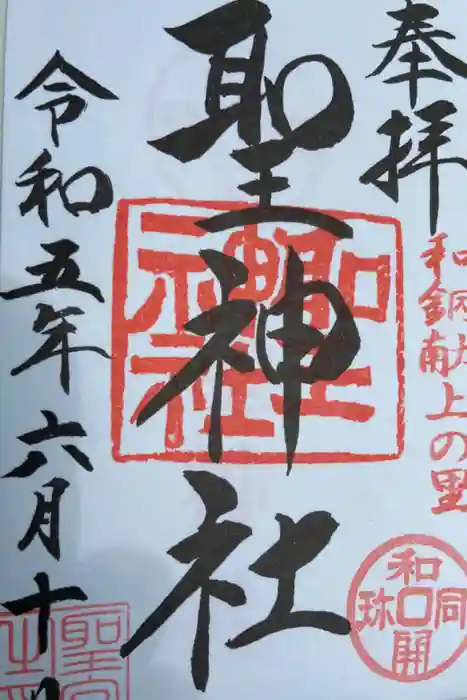 奉拝
和銅献上の里
和同開珎
聖神社
聖神社
令和五年六月十